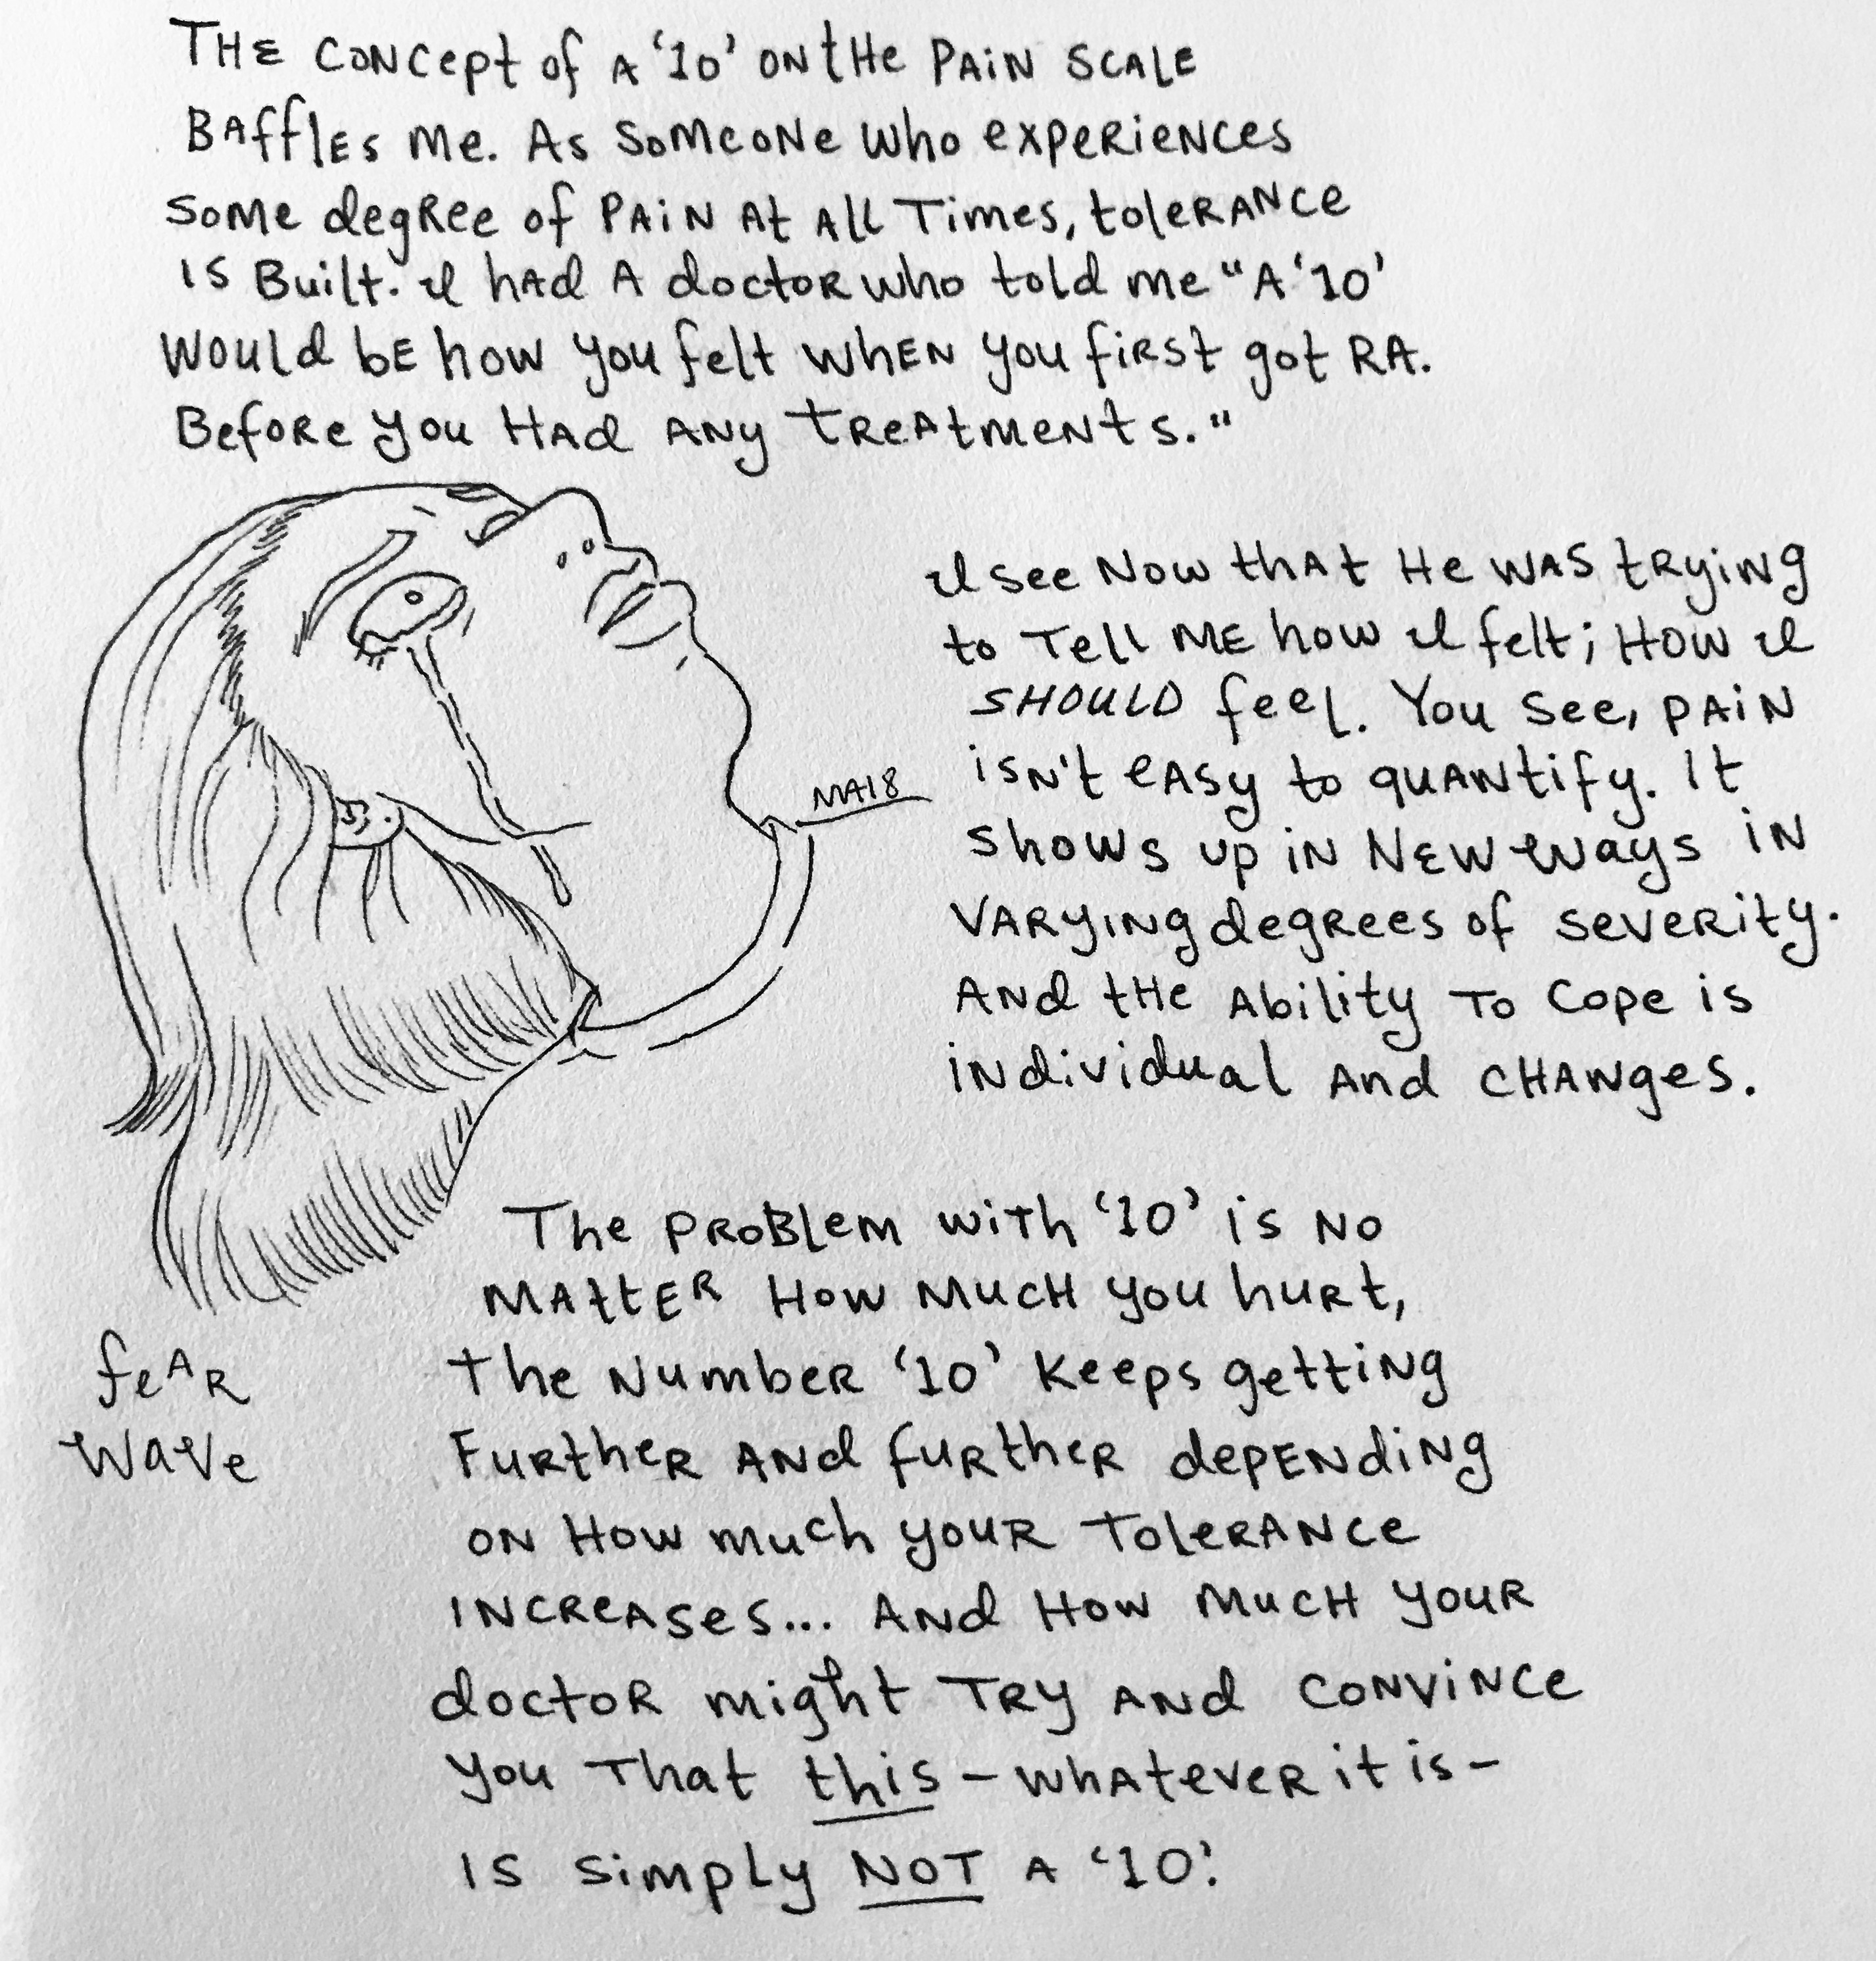 THE CONCEPT OF A '10' ON THE PAIN SCALE
BAFFLES ME. AS SOMEONE WHO EXPERIENCES
SOME DEGREE OF PAIN AT ALL TIMES, TOLERANCE
IS BUILT. I HAD A DOCTOR WHO TOLD ME "A '10'
WOULD BE HOW YOU FELT WHEN YOU FIRST GOT RA.
BEFORE YOU HAD ANY TREATMENTS."
I SEE NOW THAT HE WAS TRYING
TO TELL ME HOW I FELT; HOW I
SHOULD FEEL. YOU SEE, PAIN
ISN'T EASY TO QUANTIFY. IT
SHOWS UP IN NEW WAYS IN
VARYING DEGREES OF SEVERITY.
AND THE ABILITY TO COPE IS
INDIVIDUAL AND CHANGES.
MA18
THE PROBLEM WITH '10' IS NO
MATTER HOW MUCH YOU HURT,
THE NUMBER '10' KEEPS GETTING
FURTHER AND FURTHER DEPENDING
ON HOW MUCH YOUR TOLERANCE
INCREASES... AND HOW MUCH YOUR
DOCTOR MIGHT TRY AND CONVINCE
YOU THAT THIS – WHATEVER IT IS –
IS SIMPLY NOT A '10'.
FEAR
WAVE